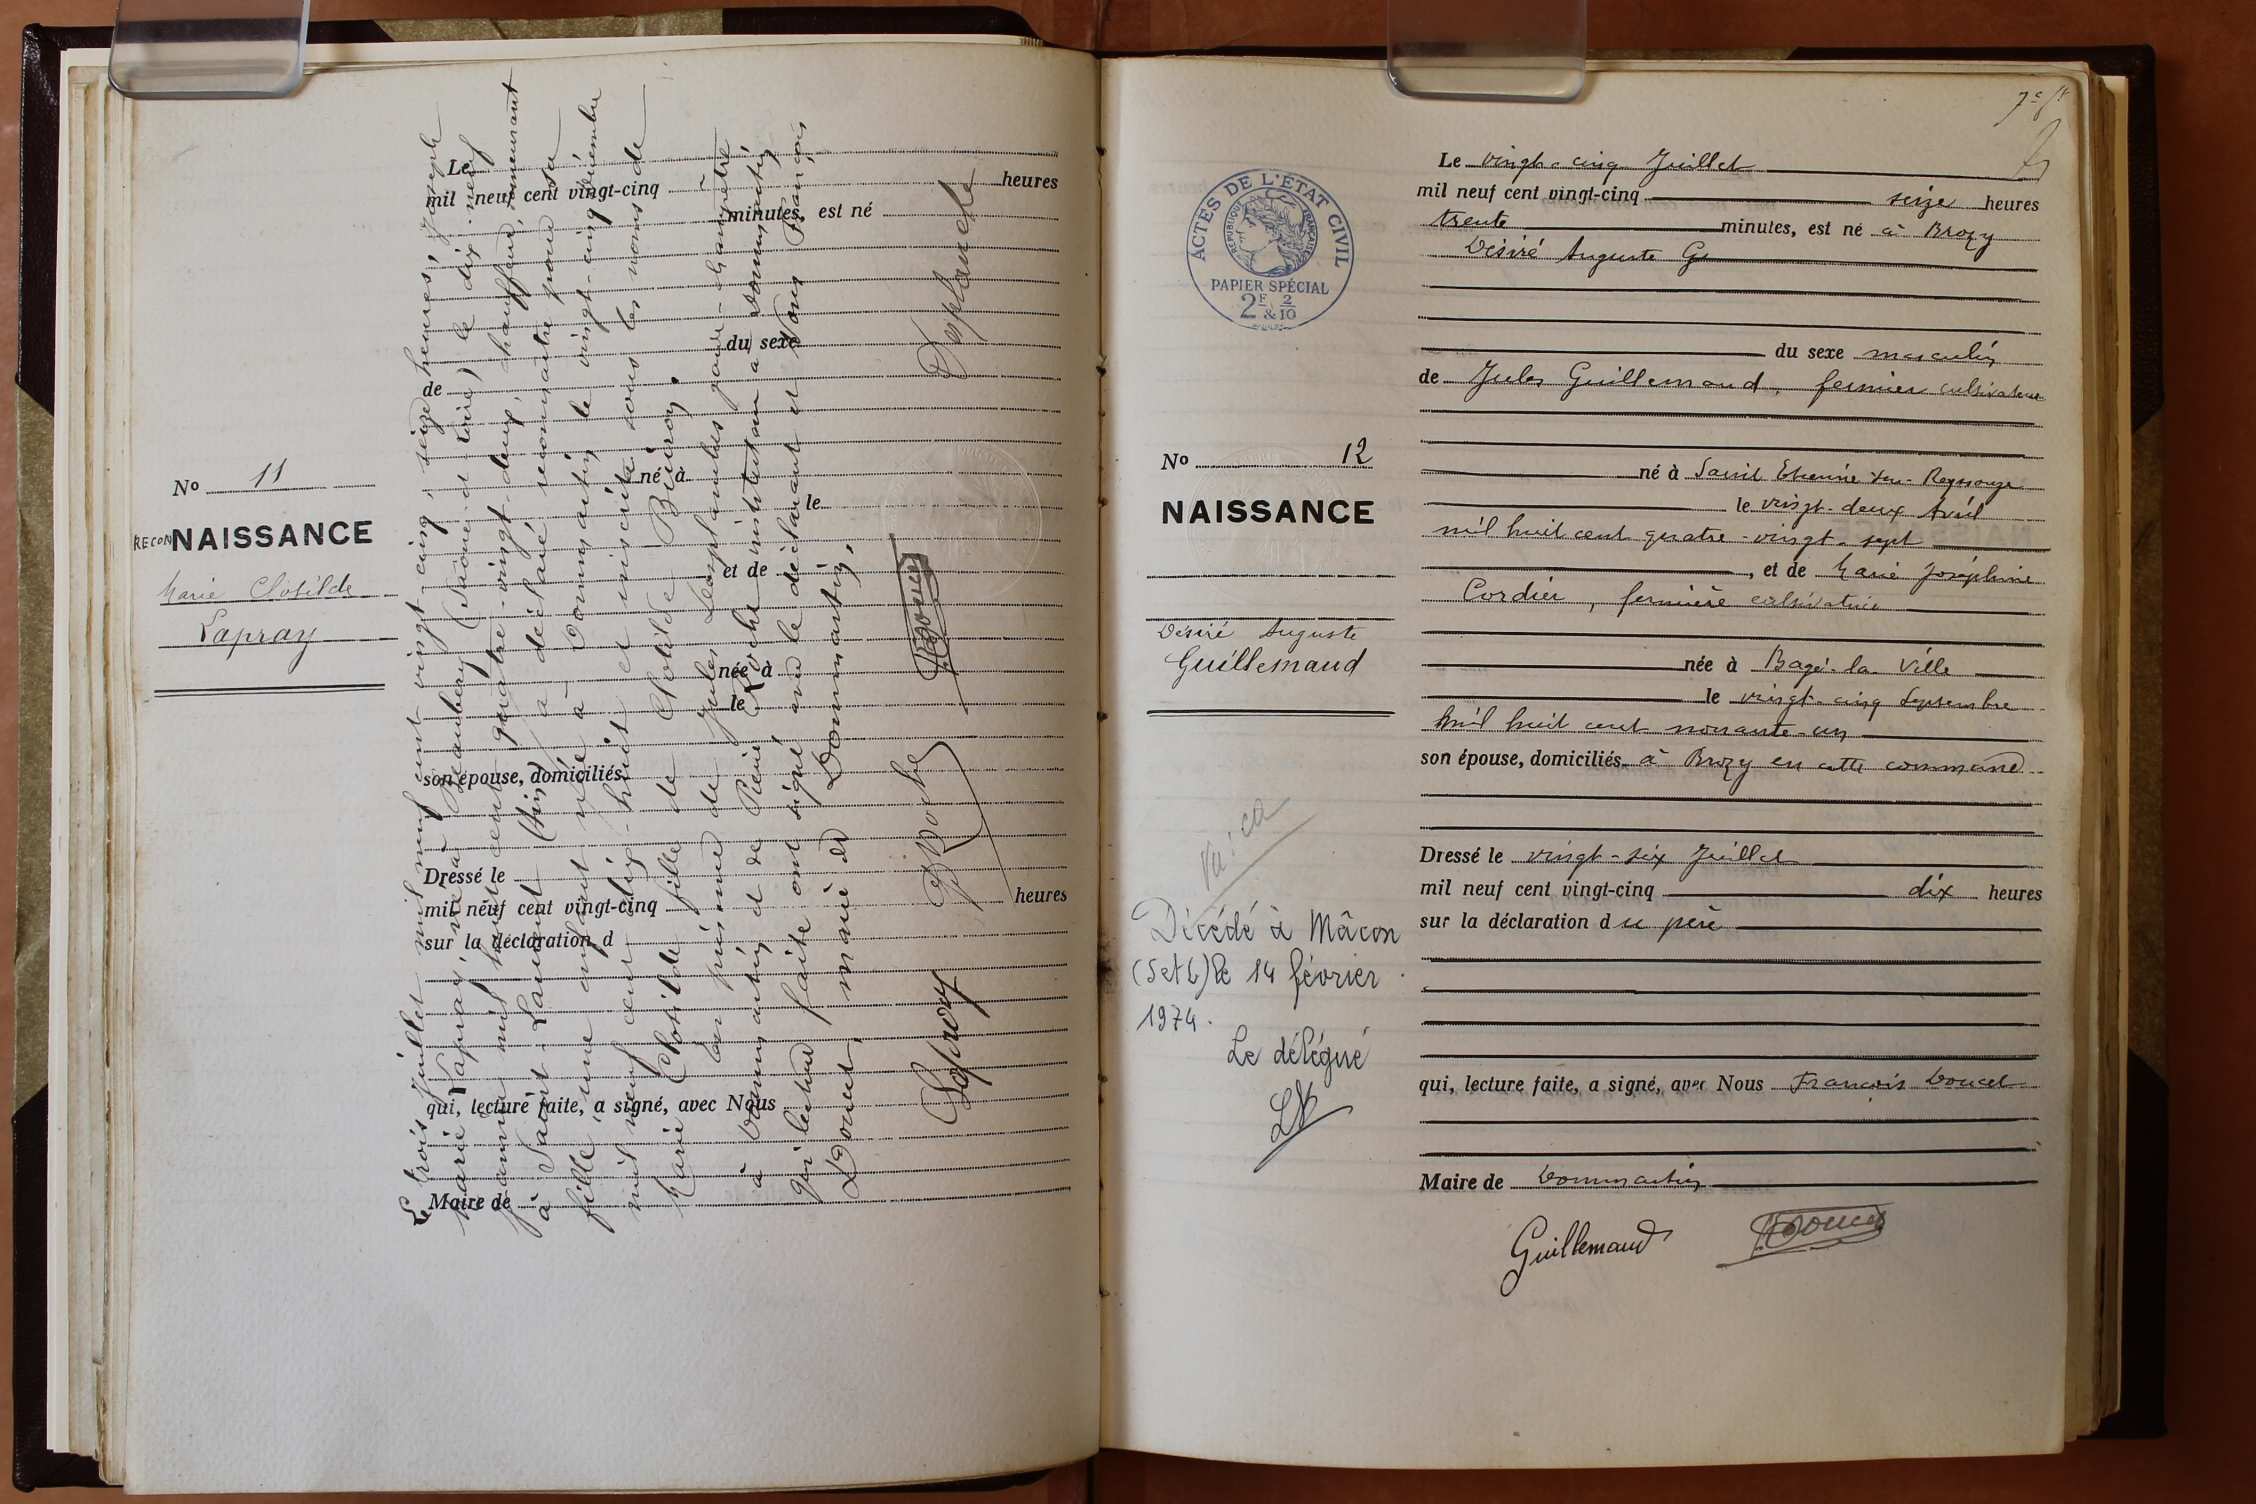 No 11
RECON NAISSANCE
Marie Clotilde
Lapray
Le
mil neuf cent vingt-cinq heures
minutes, est né
du sexe
de
né à
le
et de
née à
le
son épouse, domiciliés
Dressé le
mil neuf cent vingt-cinq heures
sur la déclaration d
qui, lecture faite, a signé, avec Nous
Maire de
Le trois juillet mil neuf cent vingt-cinq, seize heures, Joseph
Marie Lapray, né à Beaubery (Saône-et-Loire) le dix neuf
janvier mil huit cent quatre-vingt-deux, chauffeur, demeurant
à Saint-Laurent (Ain) a déclaré reconnaître pour sa
fille une enfant née à Dommartin le vingt-cinq décembre
mil neuf cent dix-huit et inscrite sous les noms de
Marie Clotilde fille de Clotilde
En présence de Jules Desplanches garde-champêtre
à Dommartin et de Pierre Roche instituteur à Dommartin
qui lecture faite ont signé avec le déclarant et Nous François
Doucet, maire de Dommartin,
Lapray
P Roche
Doucet
Desplanche
7e ft
ACTES DE L'ETAT CIVIL
REPUBLIQUE FRANÇAISE
PAPIER SPÉCIAL
2F 2/10
&
No 12
NAISSANCE
Désiré Auguste
Guillemaud
Décédé à Mâcon
(S et L) le 14 février
1974.
Le délégué
Le vingt-cinq Juillet
mil neuf cent vingt-cinq seize heures
trente minutes, est né à Brozy
Désiré Auguste G
du sexe masculin
de Jules Guillemaud, fermier cultivateur
né à Saint Etienne sur Reyssouze
le vingt-deux Avril
mil huit cent quatre-vingt-sept
, et de Marie Joséphine
Cordier, fermière cultivatrice
née à Bagé-la-Ville
le vingt-cinq Septembre
mil huit cent nonante-un
son épouse, domiciliés à Brozy en cette commune
Dressé le vingt-six Juillet
mil neuf cent vingt-cinq dix heures
sur la déclaration du père
qui, lecture faite, a signé, avec Nous François Doucet
Maire de Dommartin
Guillemaud
Doucet